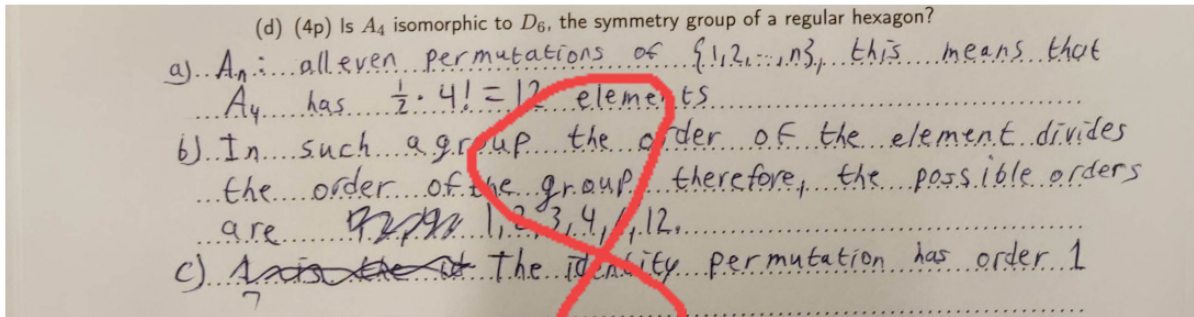 (d) (4p) Is A4 isomorphic to D6, the symmetry group of a regular hexagon?
a) An: all even permutations of {1,2,...,n}, this means that
A4 has 1/2 · 4! = 12 elements
b) In such a group the order of the element divides
the order of the group, therefore, the possible orders
are 1,2,3,4,6,12.
c) The identity permutation has order 1